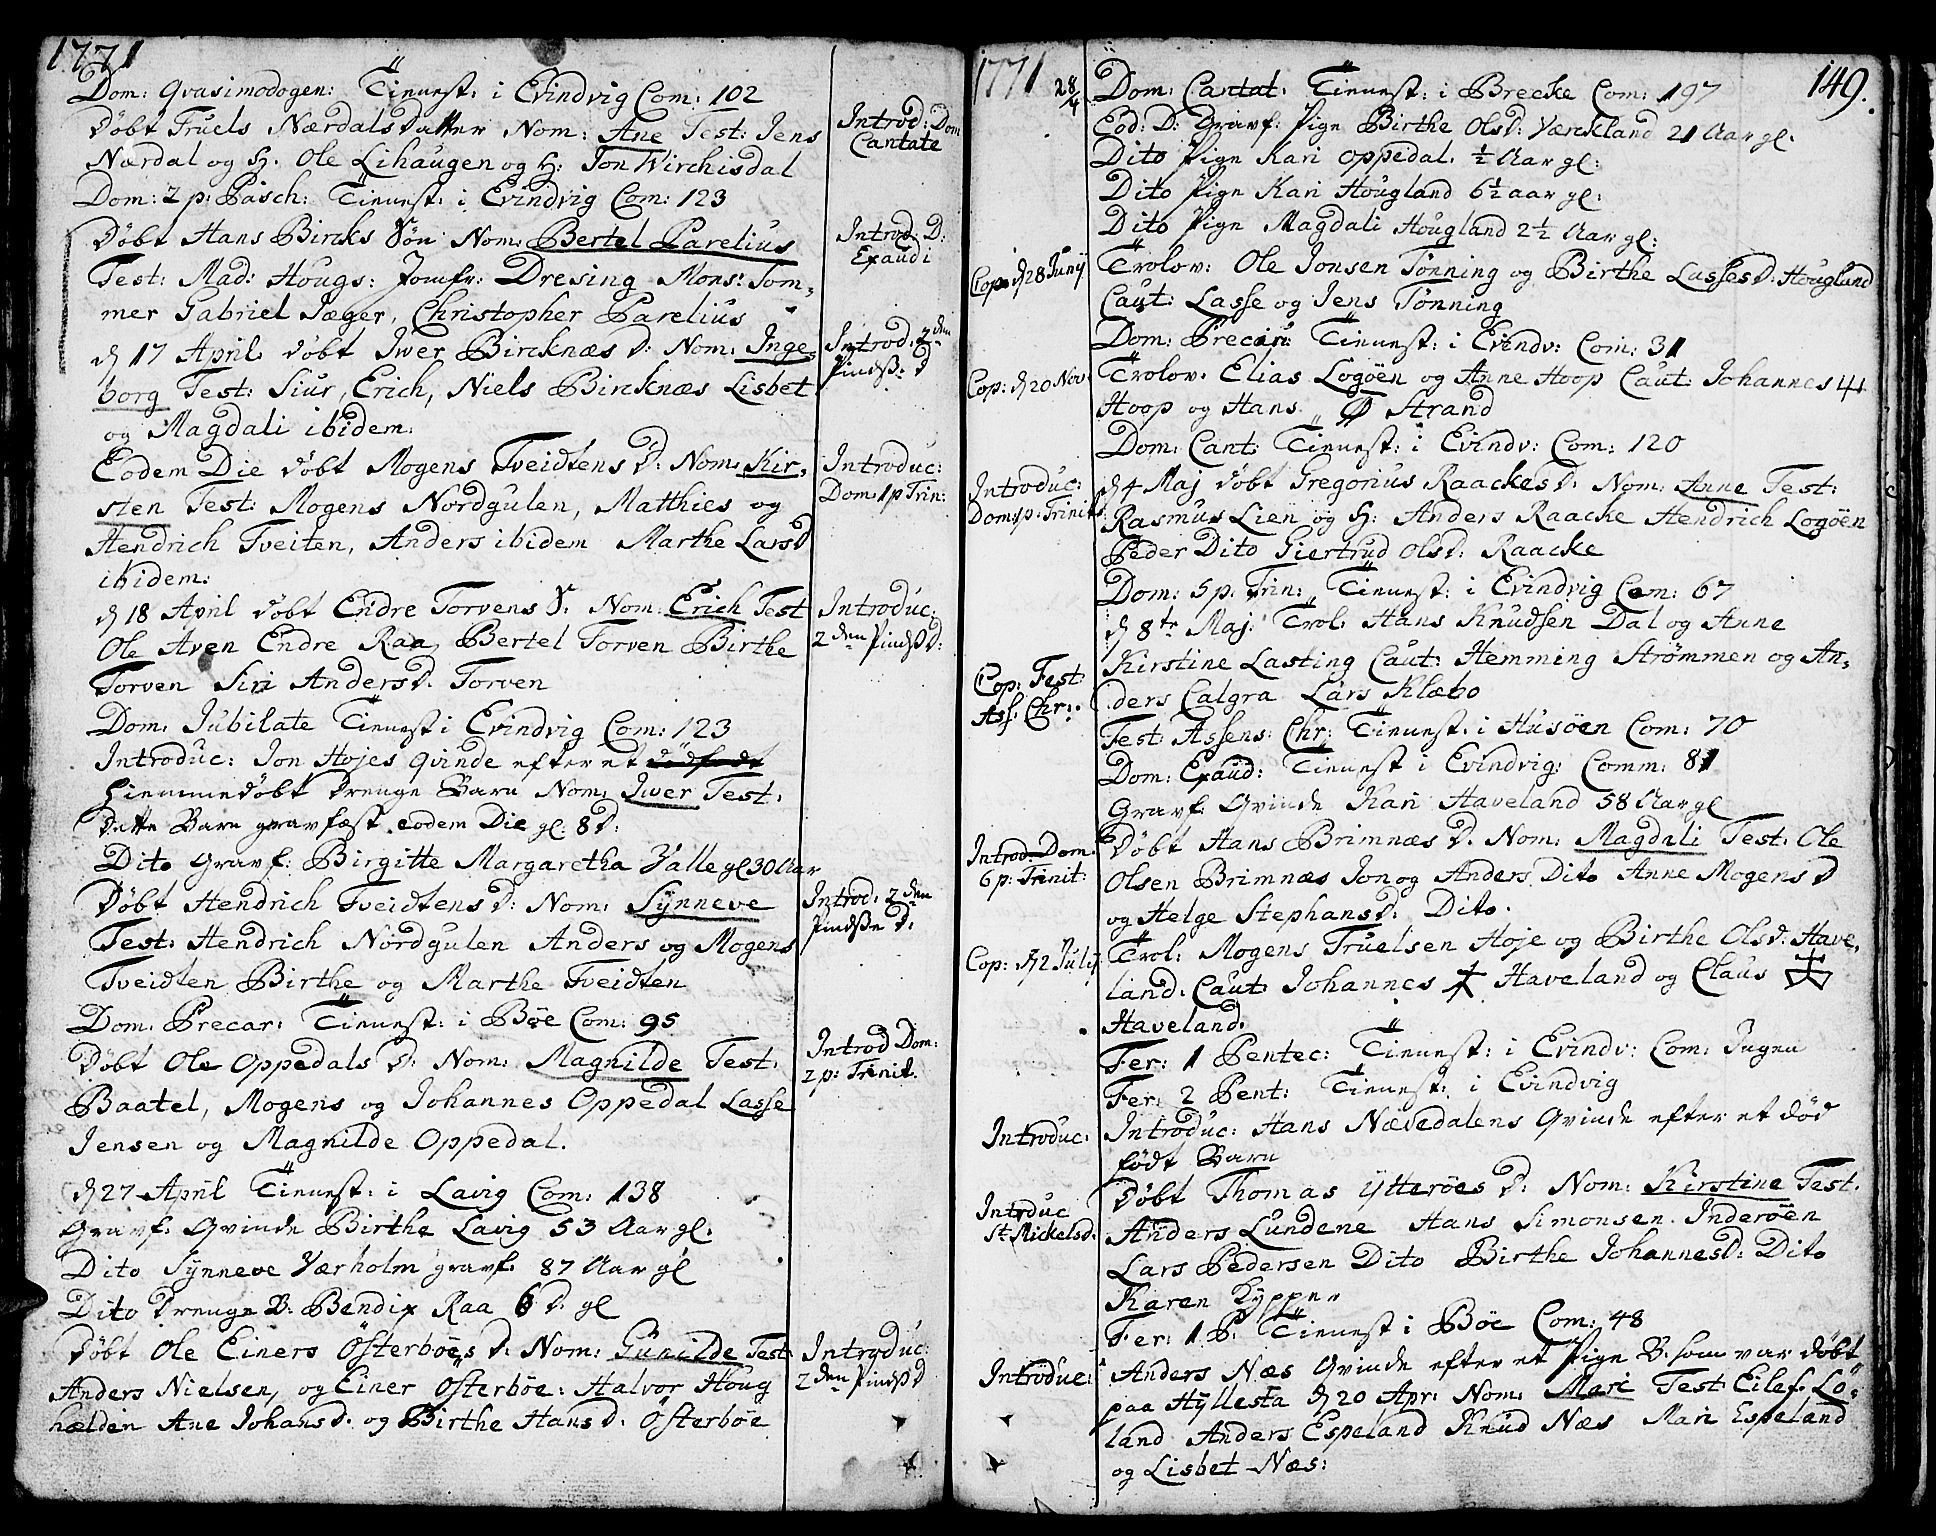 1771
Dom: Qvasimodogen: Tienest: i Evindvig Com: 102
Döbt Truels Nærdals Datter Nom: Ane Test: Jens
Nærdal og H. Ole Lihaugen og H: Jon Wirchisdal
Introd: Dom
Cantate
Dom: 2 p: Pasch: Tienest: i Evindvig Com: 123
Döbt Hans Bircks Sön Nom: Bertel Parelius
Test: Mad: Hougs: Jomfr: Dresing Mons: Som-
mer Gabriel Jæger, Christopher Parelius
Introd. D:
Exaudi
d 17 April döbt Iwer Bircknæs D: Nom: Inge-
borg Test: Siur, Erich, Niels Bircknæs Lisbet
og Magdali ibidem.
Introd. 2den
Pindsse D
Eodem Die döbt Mogens Tveidtens D: Nom: Kir-
sten Test: Mogens Nordgulen, Matthies og
Hendrich Tveiten, Anders ibidem Marthe Lars D
ibidem:
Introduc:
Dom: 1 p Trin:
d 18 April döbt Endre Torvens S: Nom: Erich Test
Ole Aven Endre Raa, Bertel Torven Birthe
Torven Siri Anders D. Torven
Introduc:
2den Pindss D:
Dom: Jubilate Tienest i Evindvig Com: 123
Introduc: Jon Hojes Qvinde efter et dödfödt
hiemmedöbt Drenge Barn Nom: Iwer Test:
Dette Barn gravfæst eodem Die gl: 8 D:
Dito Gravf: Birgitte Margaretha Zalle gl 30 Aar
Döbt Hendrich Tveidtens D: Nom: Synneve
Test: Hendrich Nordgulen Anders og Mogens
Tveidten Birthe og Marthe Tveidten
Introd: 2den
Pindsse D:
Dom: Precar: Tienest: i Böe Com: 95
Döbt Ole Oppedals D: Nom: Magnilde Test:
Baatel, Mogens og Johannes Oppedal Lasse
Jensen og Magnilde Oppedal.
Introd Dom:
2 p: Trinit.
d 27 April Tienest: i Lavig Com: 138
Gravf: Qvinde Birthe Lavig 53 Aar gl:
Dito Synneve Værholm gravf: 87 Aar gl
Dito Drenge B: Bendix Raa 6 D: gl
Döbt Ole Einers Österböes D: Nom: Gunilde Test
Anders Nielsen, og Einer Österböe: Halvor Houg
hælden Ane Johans D. og Birthe Hans D: Österböe
Introduc:
2den Pindss D
1771
149.
28/4
Dom: Cantat: Tienest: i Brecke Com: 197
Eod: D: Gravf: Pige Birthe Ols D: Værckland 21 Aar gl:
Dito Pige Kari Oppedal. ½ Aar gl:
Dito Pige Kari Hougland 6½ aar gl:
Dito Pige Magdali Hougland 2½ Aar gl:
Cop: d 28 Junij
Trolov: Ole Jonsen Tönning og Birthe Lasses D: Hougland
Caut: Lasse og Jens Tönning
Dom: Precar: Tienest: i Evindv: Com: 31
Cop: d 20 Nov
Trolov: Elias Logöen og Anne Hoop Caut: Johannes
Hoop og Hans Strand
Dom: Cant: Tienest: i Evindv: Com: 120
Introduc:
Dom 5 p: Trinit
d 4 Maj döbt Gregorius Raackes D: Nom: Anne Test:
Rasmus Lien og H: Anders Raacke Hendrich Logöen
Peder Dito Giertrud Ols D: Raacke
Dom: 5 p: Trin: Tienest: i Evindvig Com: 67
d 8te Maj: Trol: Hans Knudsen Dal og Anne
Kirstine Lasting Caut: Hemming Strömmen og An-
ders Calgra Lars Klæbo
Cop: Fest
Ass: Chr:
Fest: Assens: Chr: Tienest: i Husöen Com: 70
Dom: Exaud: Tienest i Evindvig: Comm: 81
Gravf. Qvinde Kari Haveland 58 Aar gl
Introd: Dom.
6 p: Trinit:
Döbt Hans Brimnæs D. Nom: Magdali Test: Ole
Olsen Brimnæs Jon og Anders Dito Anne Mogens D
og Helge Stephans D: Dito.
Cop: d 2 Julij
Trol: Mogens Truelsen Hoje og Birthe Ols D: Have-
land. Caut: Johannes Haveland og Claus
Haveland.
Fer: 1 Pentec: Tienest: i Evindv: Com: Ingen
Fer: 2 Pent: Tienest: i Evindvig
Introduc:
Introduc: Hans Nævedalens Qvinde efter et död
födt Barn
Introduc
St Mickelsd:
Döbt Thomas Ytteröes D: Nom: Kirstine Test.
Anders Lundene Hans Simonsen Inderöen
Lars Pedersen Dito Birthe Johannes D: Dito
Karen Kypper
Fer: 1 P: Tienest i Böe Com: 48
Introduc:
Anders Næs Qvinde efter et Pige B: som var döbt
paa Hyllesta d 20 Apr: Nom: Mari Test: Eilef Lö-
land Anders Espeland Knud Næs Mari Espeland
og Lisbet Næs: